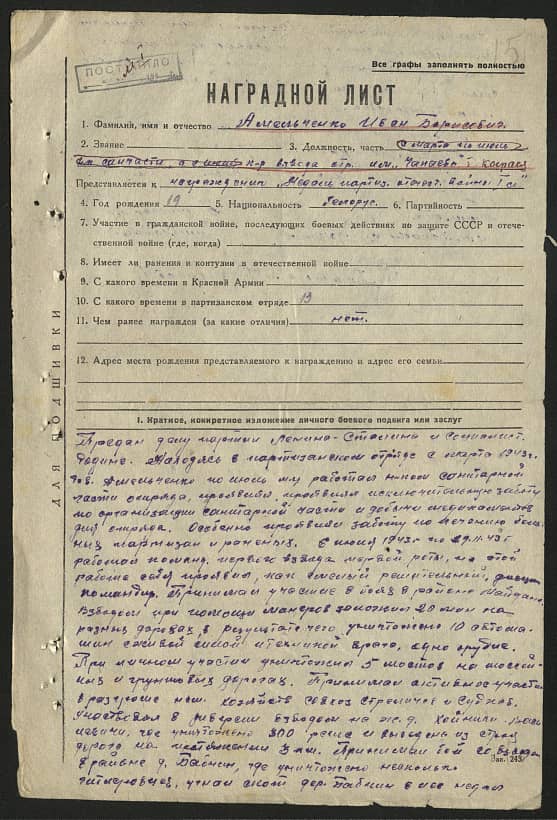 15
ПОСТУПИЛО
Все графы заполнять полностью
НАГРАДНОЙ ЛИСТ
1. Фамилия, имя и отчество Амельченко Иван Борисович
2. Звание 3. Должность, часть с марта по июнь
санчасти, к-р взвода отр. им. "Чапаева"
Представляется к награждению
4. Год рождения 19 5. Национальность белорус. 6. Партийность
7. Участие в гражданской войне, последующих боевых действиях по защите СССР и отече-
ственной войне (где, когда)
8. Имеет ли ранения и контузии в отечественной войне
9. С какого времени в Красной Армии
10. С какого времени в партизанском отряде 19
11. Чем ранее награжден (за какие отличия) нет.
12. Адрес места рождения представляемого к награждению и адрес его семьи
ДЛЯ ПОДШИВКИ
I. Краткое, конкретное изложение личного боевого подвига или заслуг
Предан делу партии Ленина-Сталина и Социалист.
Родине. Находясь в партизанском отряде с марта 1943г.
Тов. Амельченко по июнь м. работал санитарной
части отряда, проявил исключительную заботу
по организации санитарной части и добычи медикаментов
для отряда. Особенно проявлял заботу по лечению боль-
ных партизан и раненых. С июня 1943г. по 29.11.43г.
работая команд. первого взвода первой роты, на этой
работе себя проявил, как смелый решительный,
командир. Принимал участие в боях в районе
Взводом при помощи заложил 20 мин на
разных дорогах в результате чего уничтожено 10 автома-
шин с живой силой и техникой врага, одно орудие.
При личном участии уничтожено 5 мостов на шоссей-
ных и грунтовых дорогах. Принимал активное участие
в разгроме нем. хозяйств совхоз Стреличев и Судков.
Участвовал в диверсии взводом на ж.д. Хойники-
где уничтожено 300 рельс и выведена из строя
дорога на протяжении 3 км. Принимал бой со взводом
в районе д. Бабчин, где уничтожено несколько
гитлеровцев, угнал скот дер. Бабчин
Зак. 243